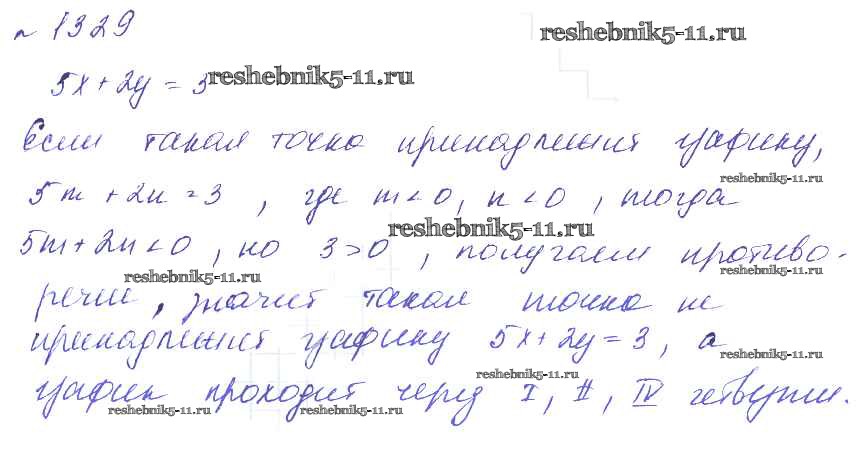 № 1329
reshebnik5-11.ru
5x + 2y = 3
reshebnik5-11.ru
Если такая точка принадлежит графику,
reshebnik5-11.ru
5m + 2n = 3, где m < 0, n < 0, тогда
reshebnik5-11.ru
5m + 2n < 0, но 3 > 0, получаем противо-
reshebnik5-11.ru
reshebnik5-11.ru
речие, значит такая точка не
принадлежит графику 5x + 2y = 3, а
reshebnik5-11.ru
reshebnik5-11.ru
график проходит через I, II, IV четверти.
reshebnik5-11.ru
reshebnik5-11.ru